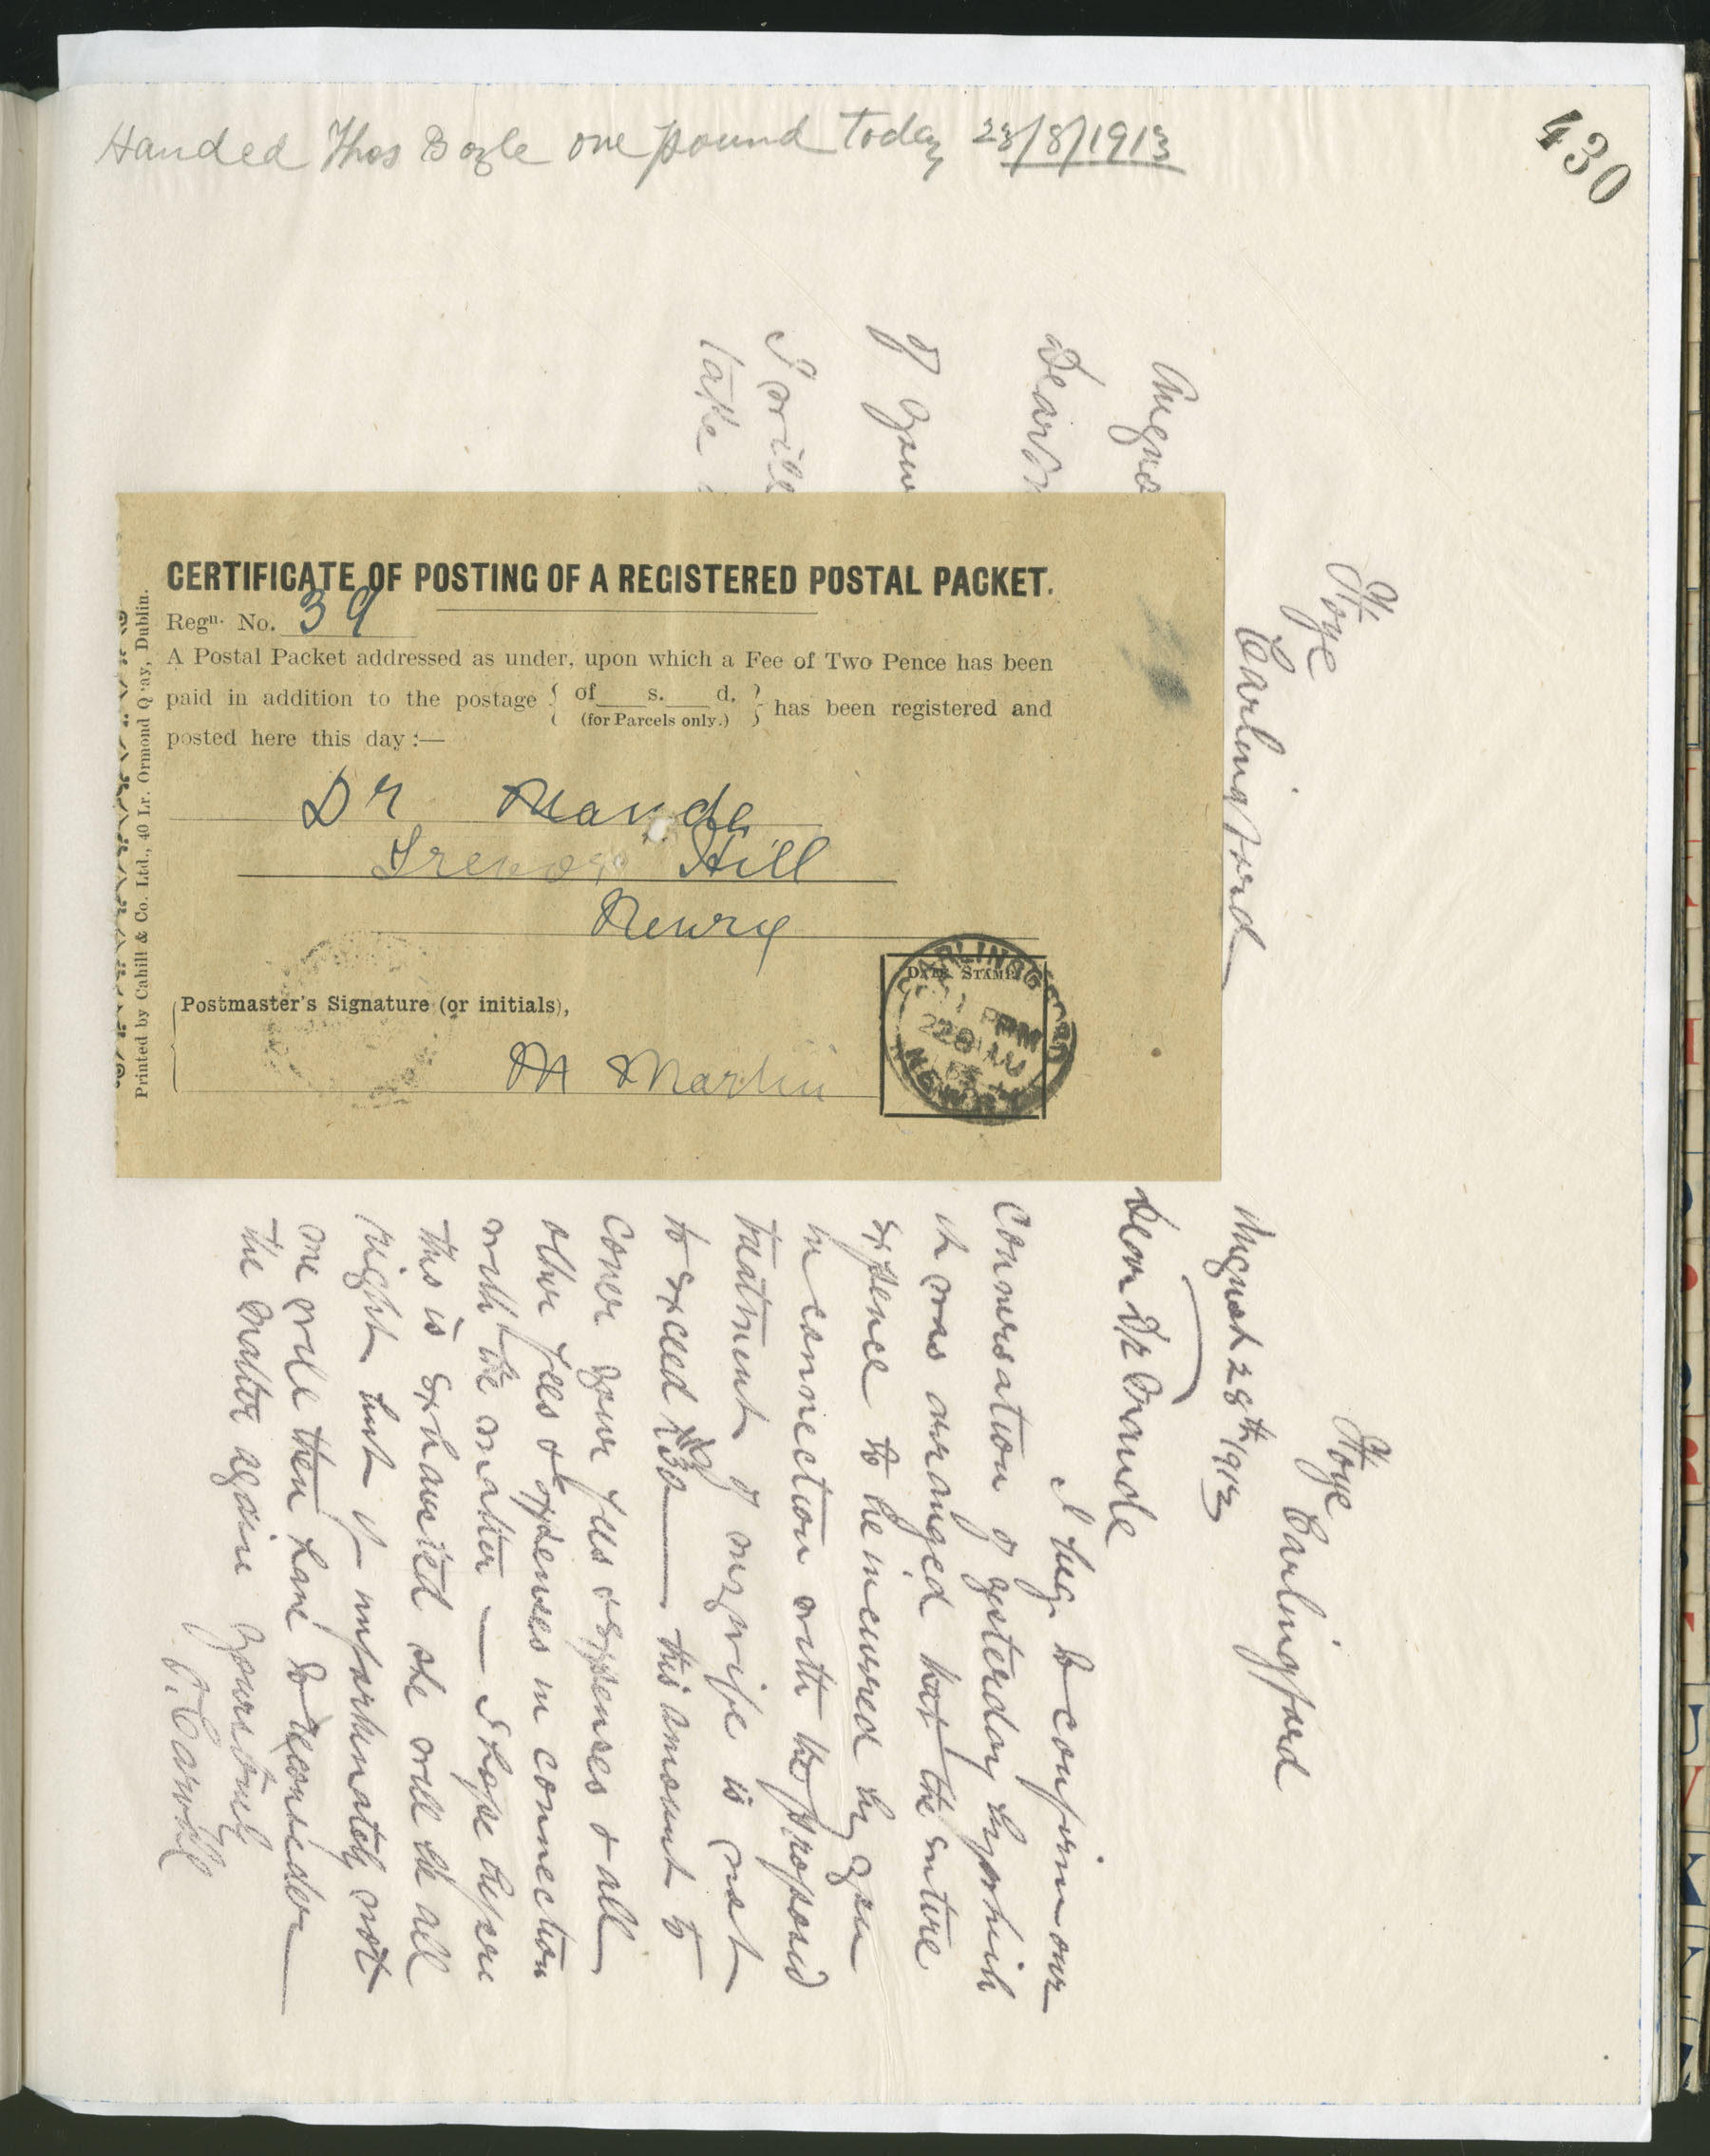 430
Handed Thos Boyle one pound today 23/8/1913
Foye
Carlingford
August
Dear
of your
I will
take
CERTIFICATE OF POSTING OF A REGISTERED POSTAL PACKET.
Regn. No. 39
A Postal Packet addressed as under, upon which a Fee of Two Pence has been
paid in addition to the postage { of s. d. (for Parcels only.) } has been registered and
posted here this day:—
Dr Maude
Trevor Hill
Newry
Postmaster's Signature (or initials),
M Martin
DATE STAMP
CARLINGFORD
NEWRY
Printed by Cahill & Co. Ltd., 40 Lr. Ormond Quay, Dublin.
Foye
Carlingford
August 28th 1913
Dear Dr Maude
I beg to confirm our
conversation of yesterday by which
it was arranged that the entire
expence to be incurred by you
in connection with the proposed
treatment of my wife is not
to exceed £30 — this amount to
cover your fees & expenses & all
other fees & expenses in connection
with the matter — I hope before
this is exhausted she will be all
right but if unfortunately not
we will then have to reconsider
the matter again yours truly